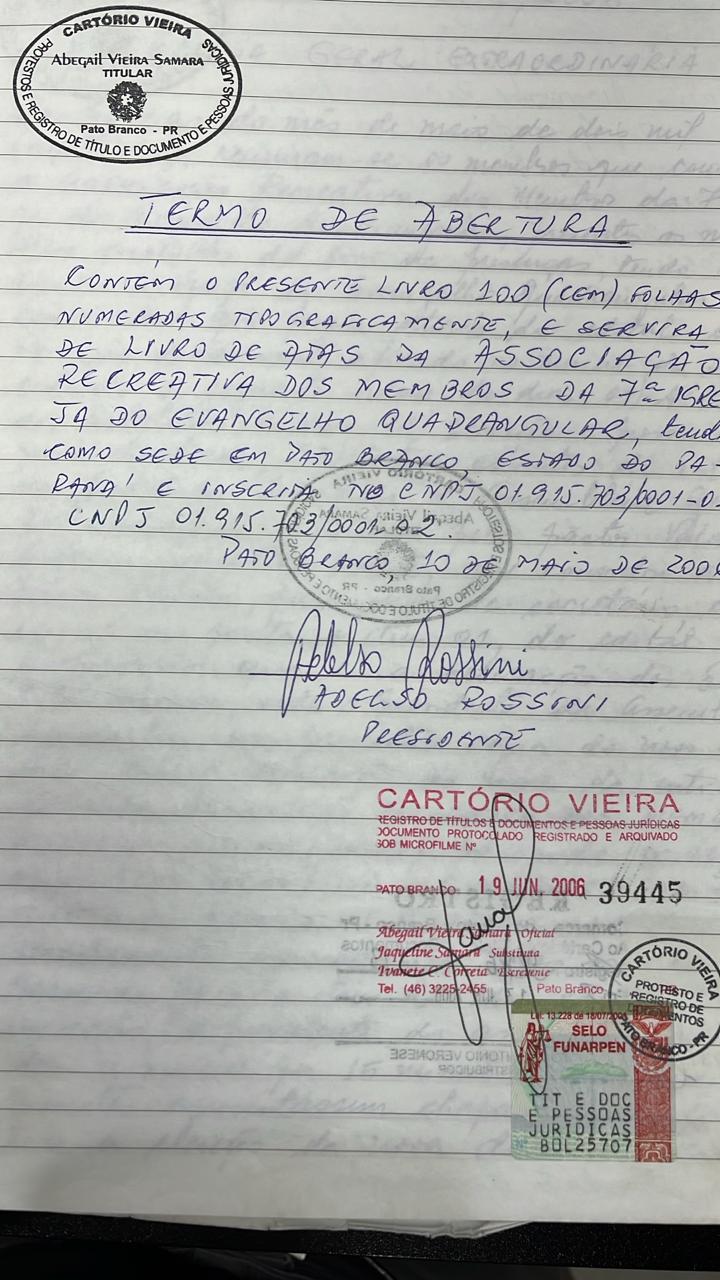 CARTÓRIO VIEIRA
ABEGAIL VIEIRA SAMARA
TITULAR
Pato Branco - PR
PROTESTOS E REGISTRO DE TÍTULO E DOCUMENTO E PESSOAS JURÍDICAS
TERMO DE ABERTURA
CONTÉM O PRESENTE LIVRO 100 (CEM) FOLHAS
NUMERADAS TIPOGRAFICAMENTE, E SERVIRA
DE LIVRO DE ATAS DA ASSOCIAÇÃO
RECREATIVA DOS MEMBROS DA 7ª IGRE
JA DO EVANGELHO QUADRANGULAR, tend
COMO SEDE EM PATO BRANCO, ESTADO DO PA-
RANÁ E INSCRITA NO CNPJ 01.915.703/0001-0
CNPJ 01.915.703/0001-02.
PATO BRANCO, 10 DE MAIO DE 200
Adelso Rossini
ADELSO ROSSINI
PRESIDENTE
CARTÓRIO VIEIRA
REGISTRO DE TÍTULOS E DOCUMENTOS E PESSOAS JURÍDICAS
DOCUMENTO PROTOCOLADO REGISTRADO E ARQUIVADO
SOB MICROFILME Nº
PATO BRANCO 19 JUN. 2006 39445
Abegail Vieira Samara Oficial
Jaqueline Samara Substituta
Ivanete C. Correia Escrevente
Tel. (46) 3225-2455 Pato Branco
CARTÓRIO VIEIRA
PROTESTO E
REGISTRO DE
DOCUMENTOS
PATO BRANCO - PR
Lei: 13.228 de 18/07/2001
SELO
FUNARPEN
TIT E DOC
E PESSOAS
JURIDICAS
BDL25707